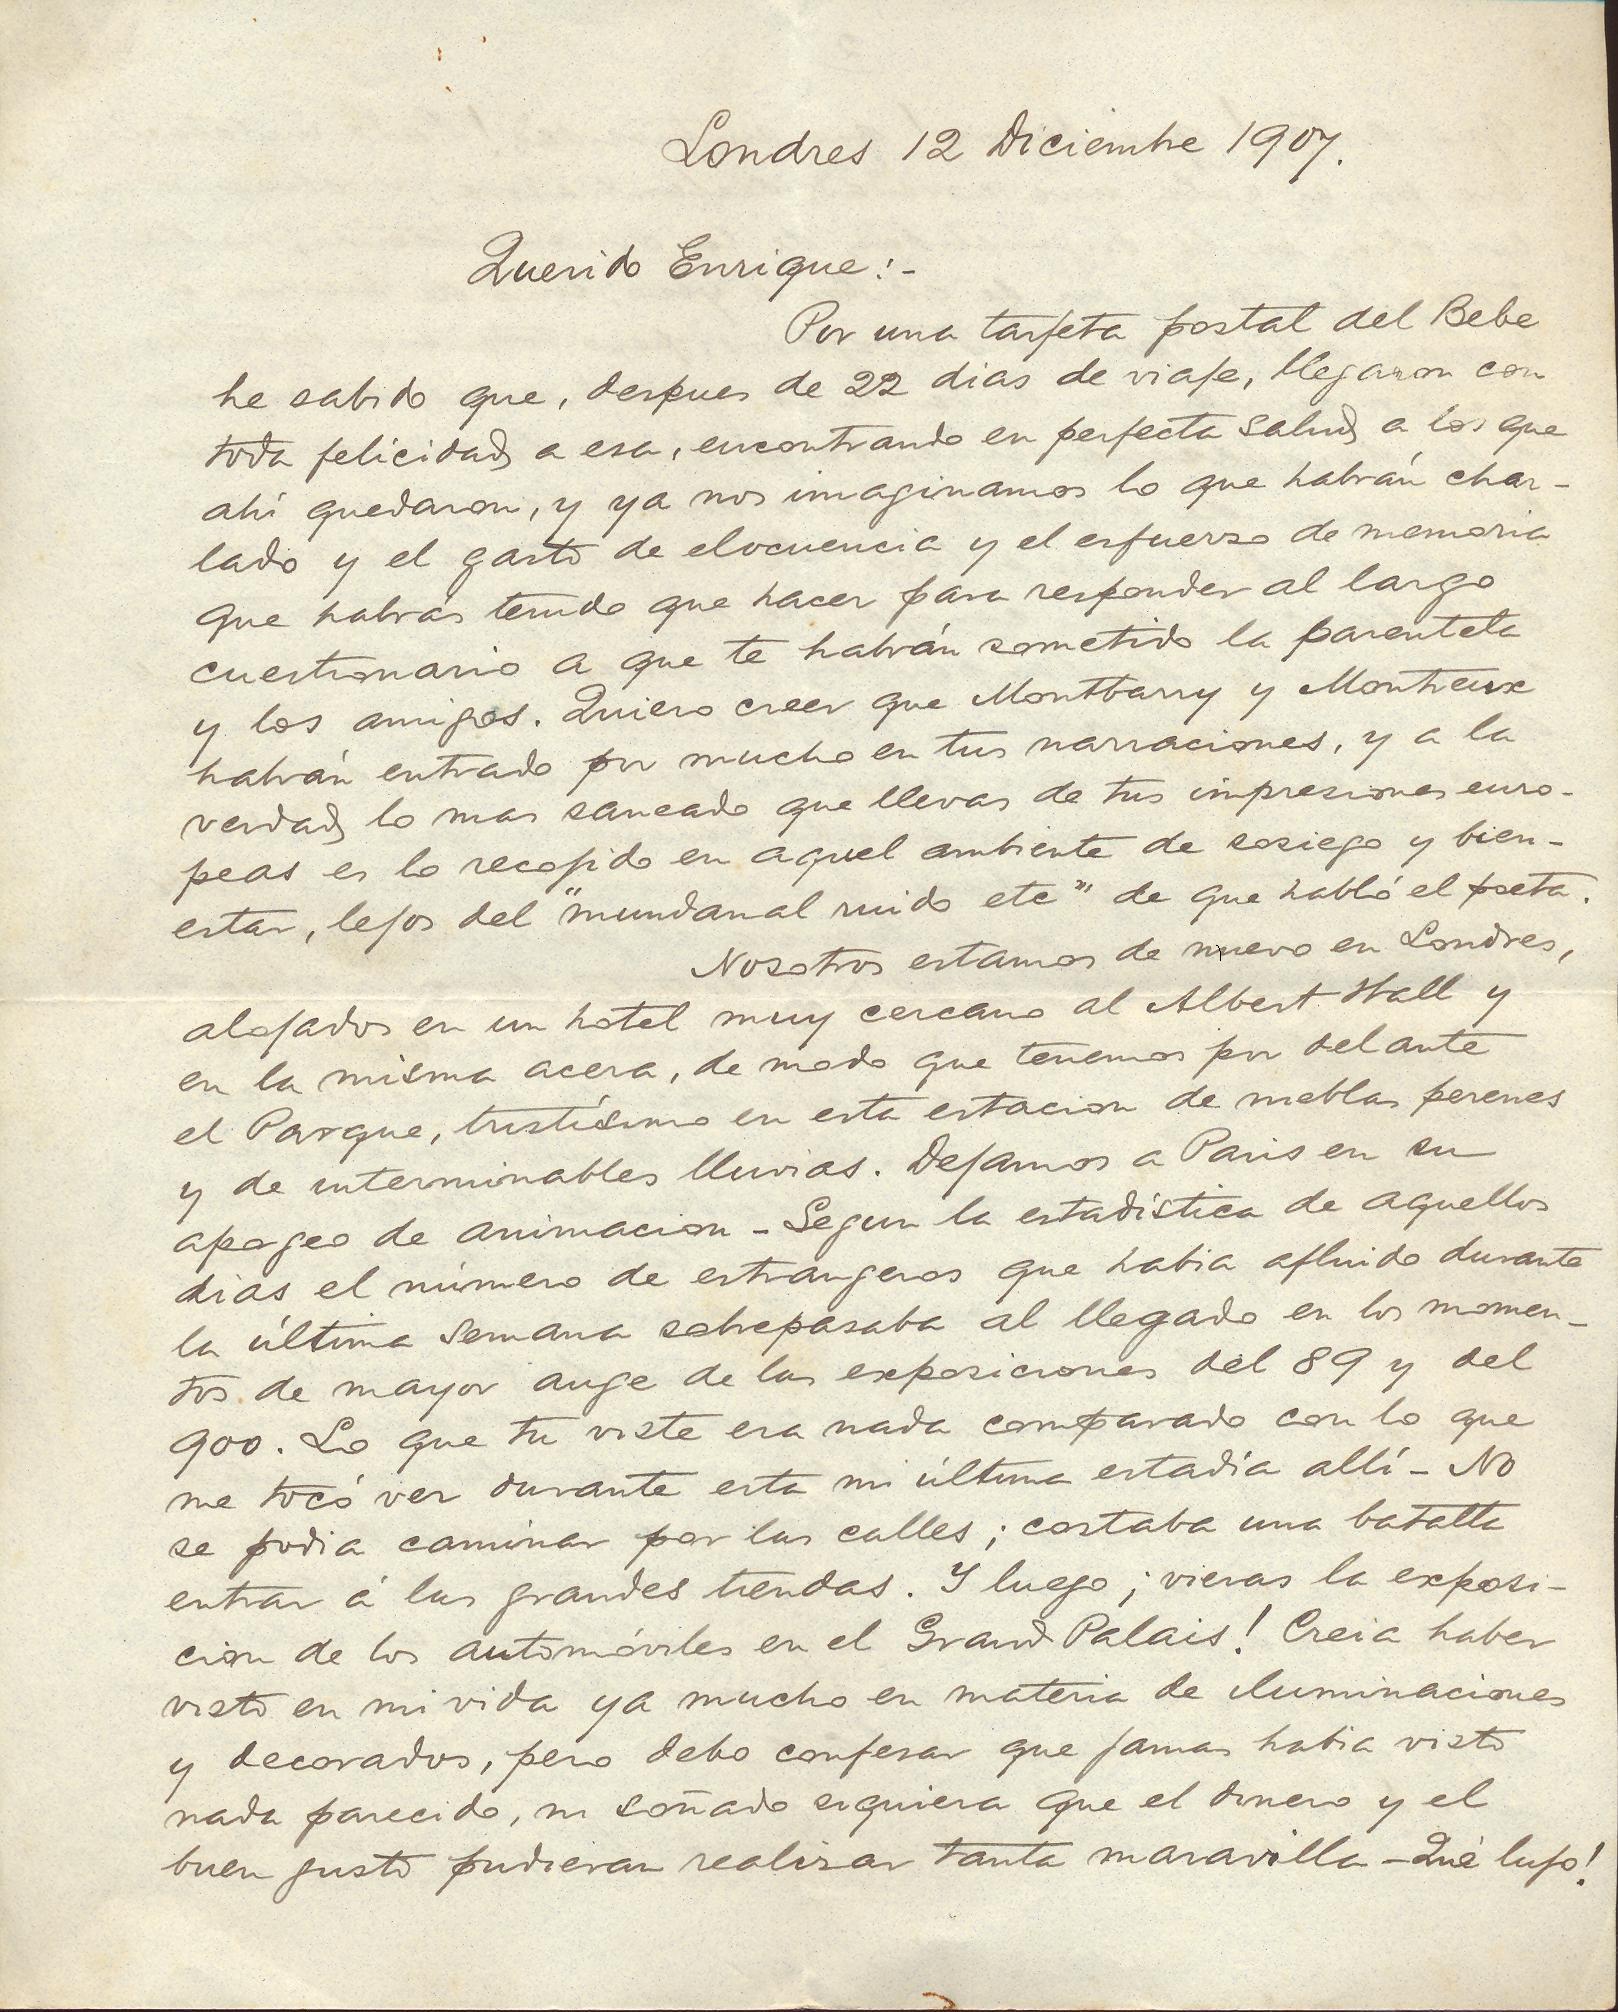 Londres 12 Diciembre 1907.
Querido Enrique:-
Por una tarjeta postal del Bebe
he sabido que, despues de 22 dias de viaje, llegaron con
toda felicidad a esa, encontrando en perfecta salud a los que
ahí quedaron, y ya nos imaginamos lo que habrán char-
lado y el gasto de elocuencia y el esfuerzo de memoria
que habrás tenido que hacer para responder al largo
cuestionario a que te habrán sometido la parentela
y los amigos. Quiero creer que Montbarry y Montreux
habrán entrado por mucho en tus narraciones, y a la
verdad lo mas saneado que llevas de tus impresiones euro-
peas es lo recojido en aquel ambiente de sosiego y bien-
estar, lejos del "mundanal ruido etc" de que habló el poeta.
Nosotros estamos de nuevo en Londres,
alojados en un hotel muy cercano al Albert Hall y
en la misma acera, de modo que tenemos por delante
el Parque, tristísimo en esta estacion de nieblas perenes
y de interminables lluvias. Dejamos a Paris en su
apogeo de animacion - Segun la estadística de aquellos
dias el número de estrangeros que habia afluido durante
la última semana sobrepasaba al llegado en los momen-
tos de mayor auge de las exposiciones del 89 y del
900. Lo que tu viste era nada comparado con lo que
me tocó ver durante esta mi última estadía allí - No
se podia caminar por las calles; costaba una batalla
entrar á las grandes tiendas. Y luego ¡vieras la exposi-
cion de los automóviles en el Grand Palais! Creia haber
visto en mi vida ya mucho en materia de iluminaciones
y decorados, pero debo confesar que jamas habia visto
nada parecido, ni soñado siquiera que el dinero y el
buen gusto pudieran realizar tanta maravilla - Qué lujo!